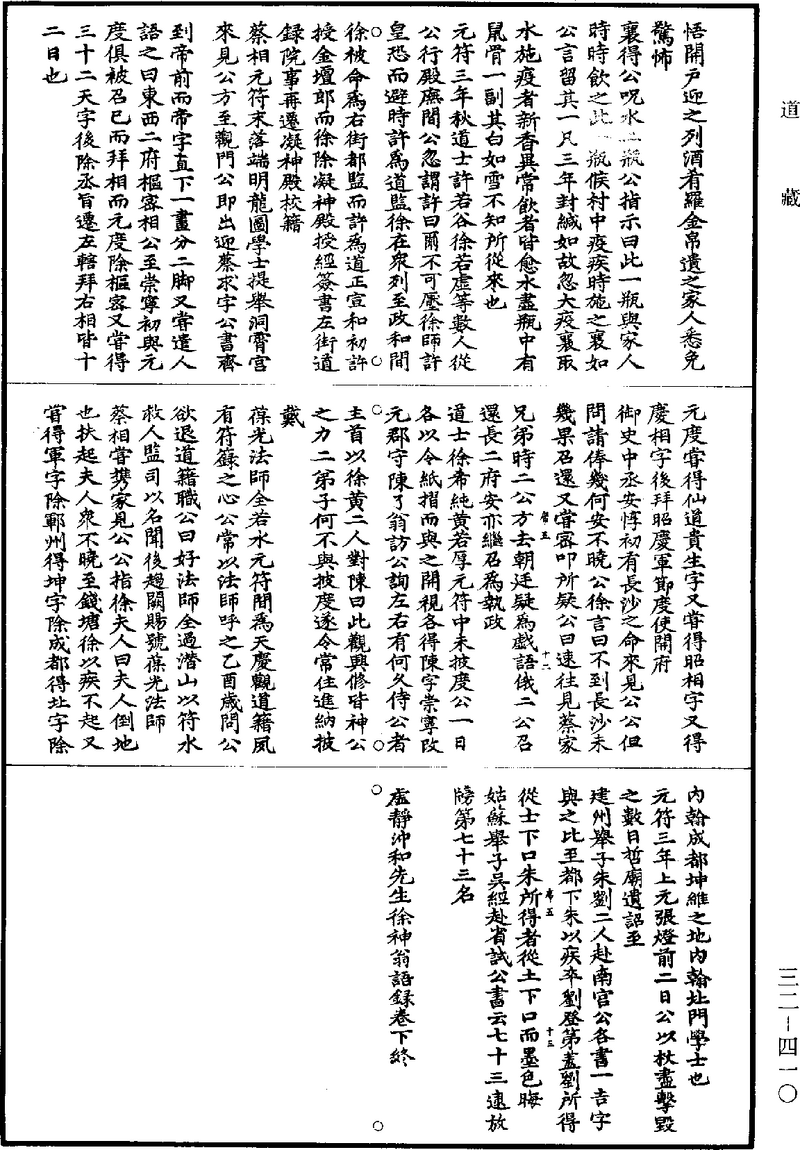 道藏
悟開戶迎之列酒肴羅金帛遺之家人悉免
驚怖
襄得公呪水二瓶公指示曰此一瓶與家人
時時飲之此一瓶候村中疫疾時施之襄如
公言留其一凡三年封緘如故忽大疫襄取
水施疫者新香異常飲者皆愈水盡瓶中有
鼠骨一副其白如雪不知所從來也
元符三年秋道士許若谷徐若虛等數人從
公行殿廡間公忽謂許曰爾不可壓徐師許
皇恐而避時許為道監徐在衆列至政和間
徐被命為右街都監而許為道正宣和初許
授金壇郎而徐除凝神殿授經簽書左街道
録院事再遷凝神殿校籍
蔡相元符末落端明龍圖學士提舉洞霄宮
來見公方至觀門公即出迎蔡求字公書齊
到帝前而帝字直下一畫分二脚又嘗遣人
語之曰東西二府樞密相公至崇寧初與元
度俱被召已而拜相而元度除樞密又嘗得
三十二天字後除丞旨遷左轄拜右相皆十
二日也
元度嘗得仙道貴生字又嘗得昭相字又得
慶相字後拜昭慶軍節度使開府
御史中丞安惇初有長沙之命來見公公但
問請俸幾何安不曉公徐言曰不到長沙未
幾果召還又嘗密叩所疑公曰速往見蔡家
兄弟時二公方去朝廷疑為戲語俄二公召
還長二府安亦繼召為執政
道士徐希純黃若厚元符中未披度公一日
各以令紙㨃而與之開視各得陳字崇寧改
元郡守陳了翁訪公詢左右有何久侍公者
主首以徐黃二人對陳曰此觀興修皆神公
之力二弟子何不與披度遂令常住進納披
戴
葆光法師全若水元符間為天慶觀道籍夙
有符籙之心公常以法師呼之乙酉歲問公
欲退道籍職公曰好法師全過潛山以符水
救人監司以名聞後趨闕賜號葆光法師
蔡相嘗携家見公公指徐夫人曰夫人倒地
也扶起夫人衆不曉至錢塘徐以疾不起又
嘗得軍字除鄆州得坤字除成都得北字除
內翰成都坤維之地內翰北門學士也
元符三年上元張燈前二日公以杖盡擊毀
之數日哲廟遺詔至
建州舉子朱劉二人赴南宮公各書一吉字
與之比至都下朱以疾卒劉登第蓋劉所得
從士下口朱所得者從土下口而墨色晦
姑蘇舉子吳經赴省試公書云七十三速放
牓第七十三名
虛靜沖和先生徐神翁語録卷下終
三二－四一〇